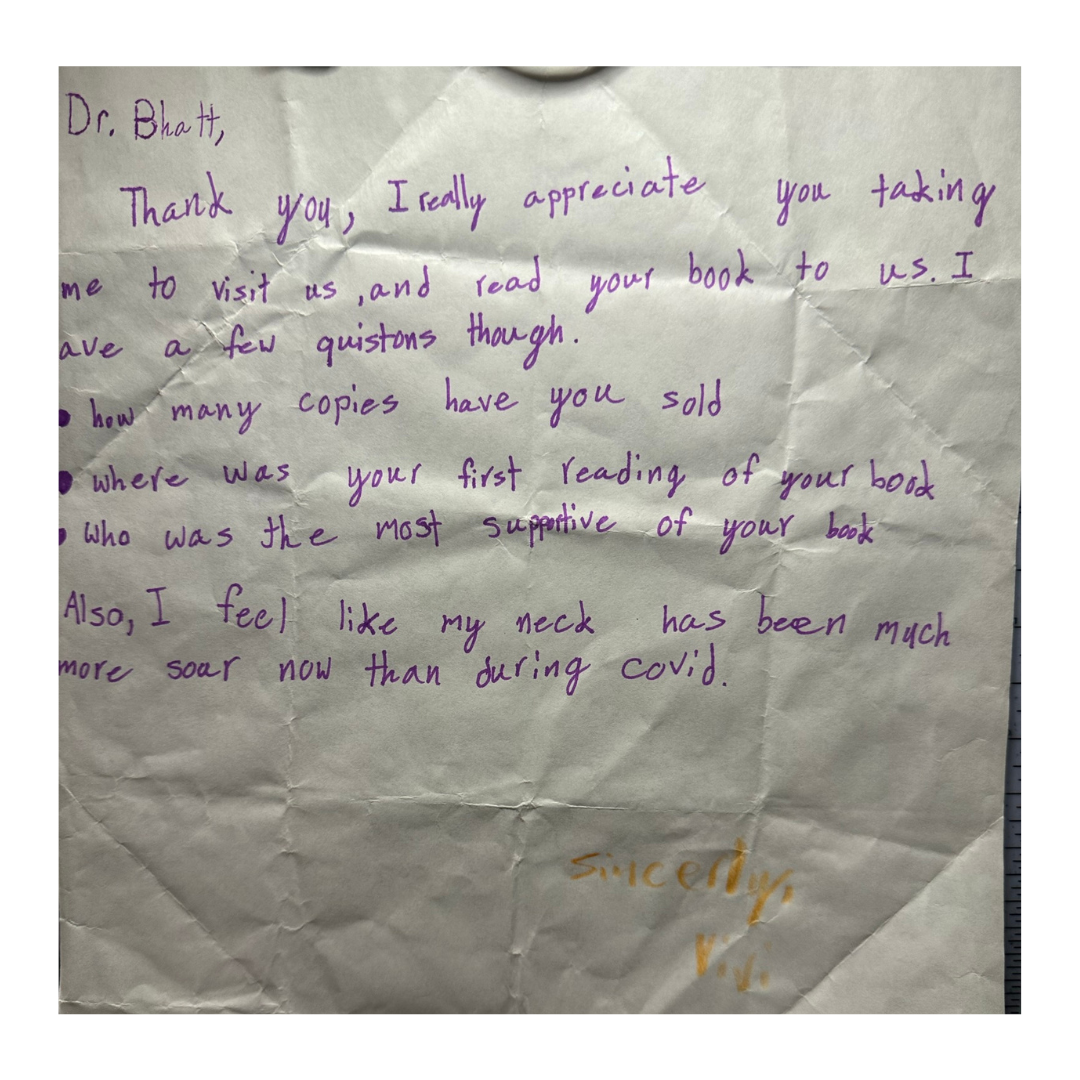 Dr. Bhatt,
Thank you, I really appreciate you taking
me to visit us, and read your book to us. I
ave a few quistons though.
• how many copies have you sold
• where was your first reading of your book
• who was the most supportive of your book
Also, I feel like my neck has been much
more soar now than during covid.
sincerly,
Vivi